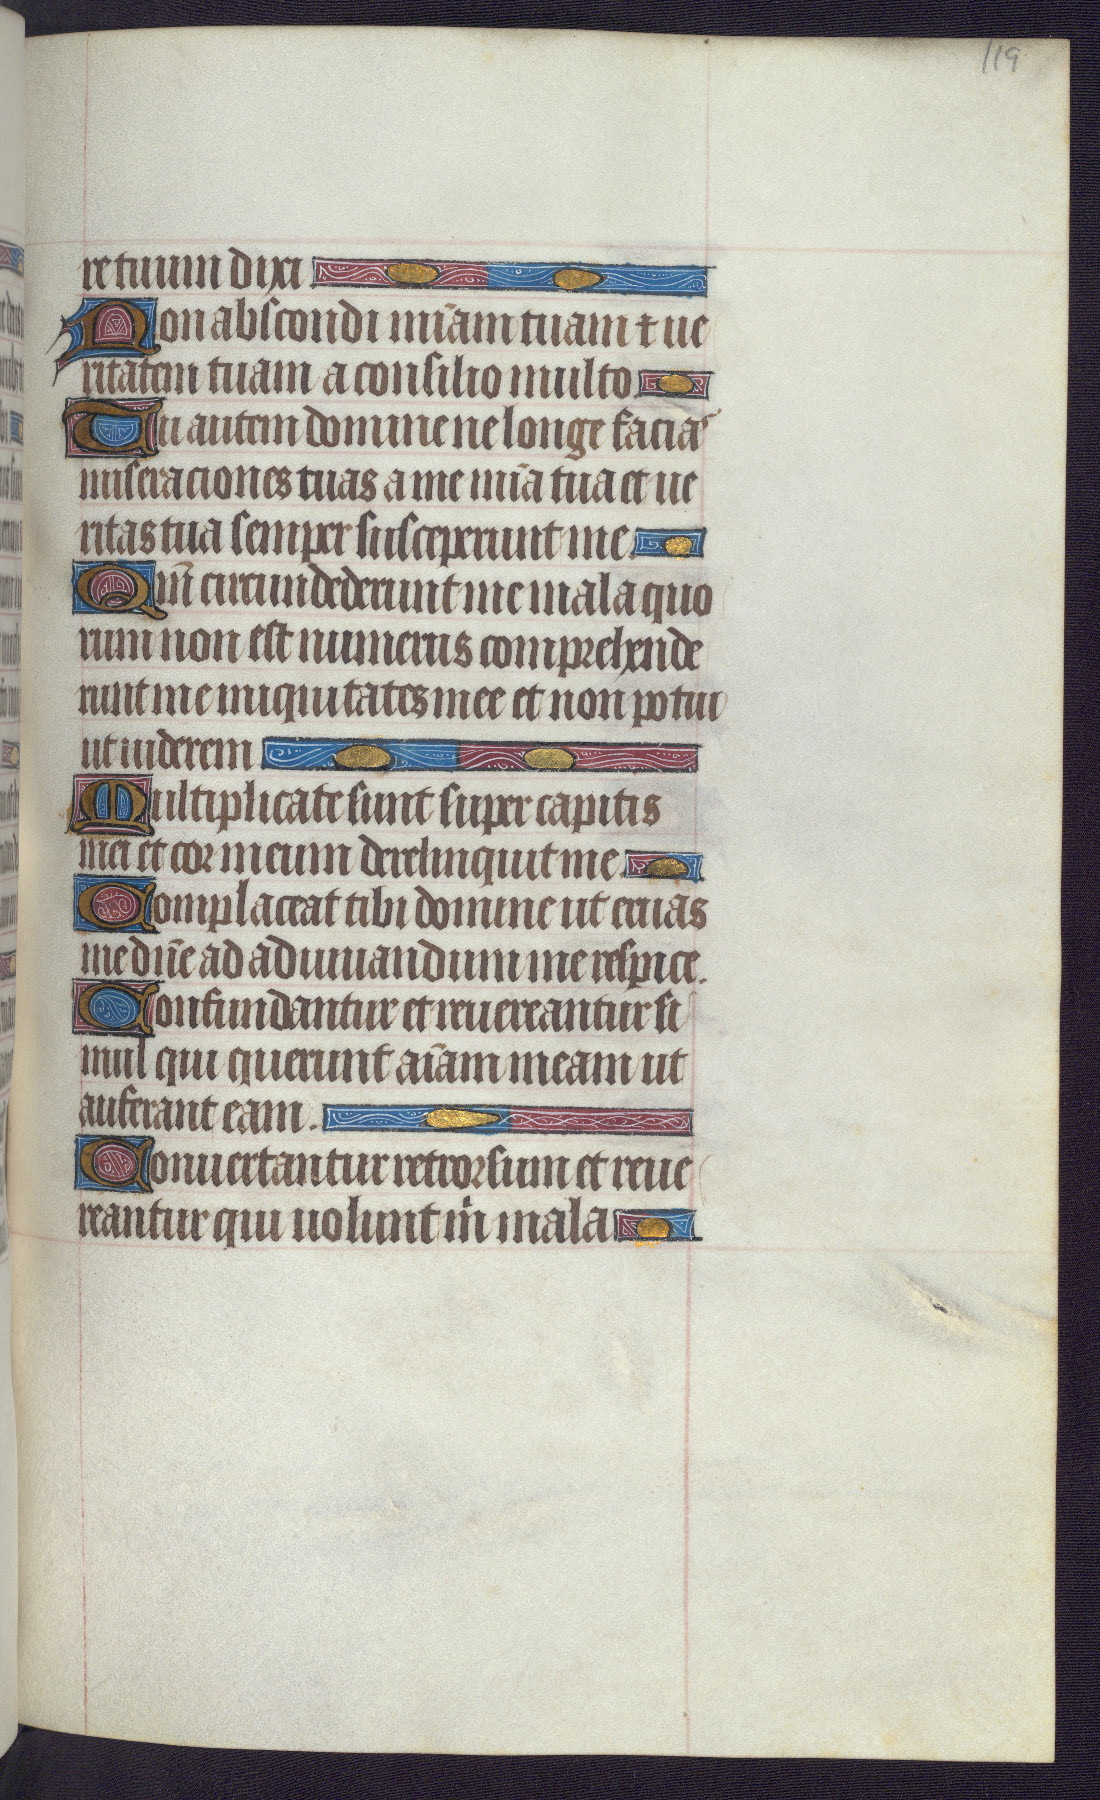 119
re tuum dixi
Non abscondi mīam tuam ⁊ ue
ritatem tuam a consilio multo
Tu autem domine ne longe facias
miseraciones tuas a me mīa tua et ue
ritas tua semper susceperunt me
Qm̄ circumdederunt me mala quo
rum non est numerus comprehende
runt me iniquitates mee et non potui
ut uiderem
Multiplicate sunt super capitis
mei et cor meum derelinquit me
Complaceat tibi domine ut eruas
me dn̄e ad adiuuandum me respice.
Confundantur et reuereantur si
mul qui querunt aīam meam ut
auferant eam.
Conuertantur retrorsum et reue
reantur qui uolunt m̄ mala